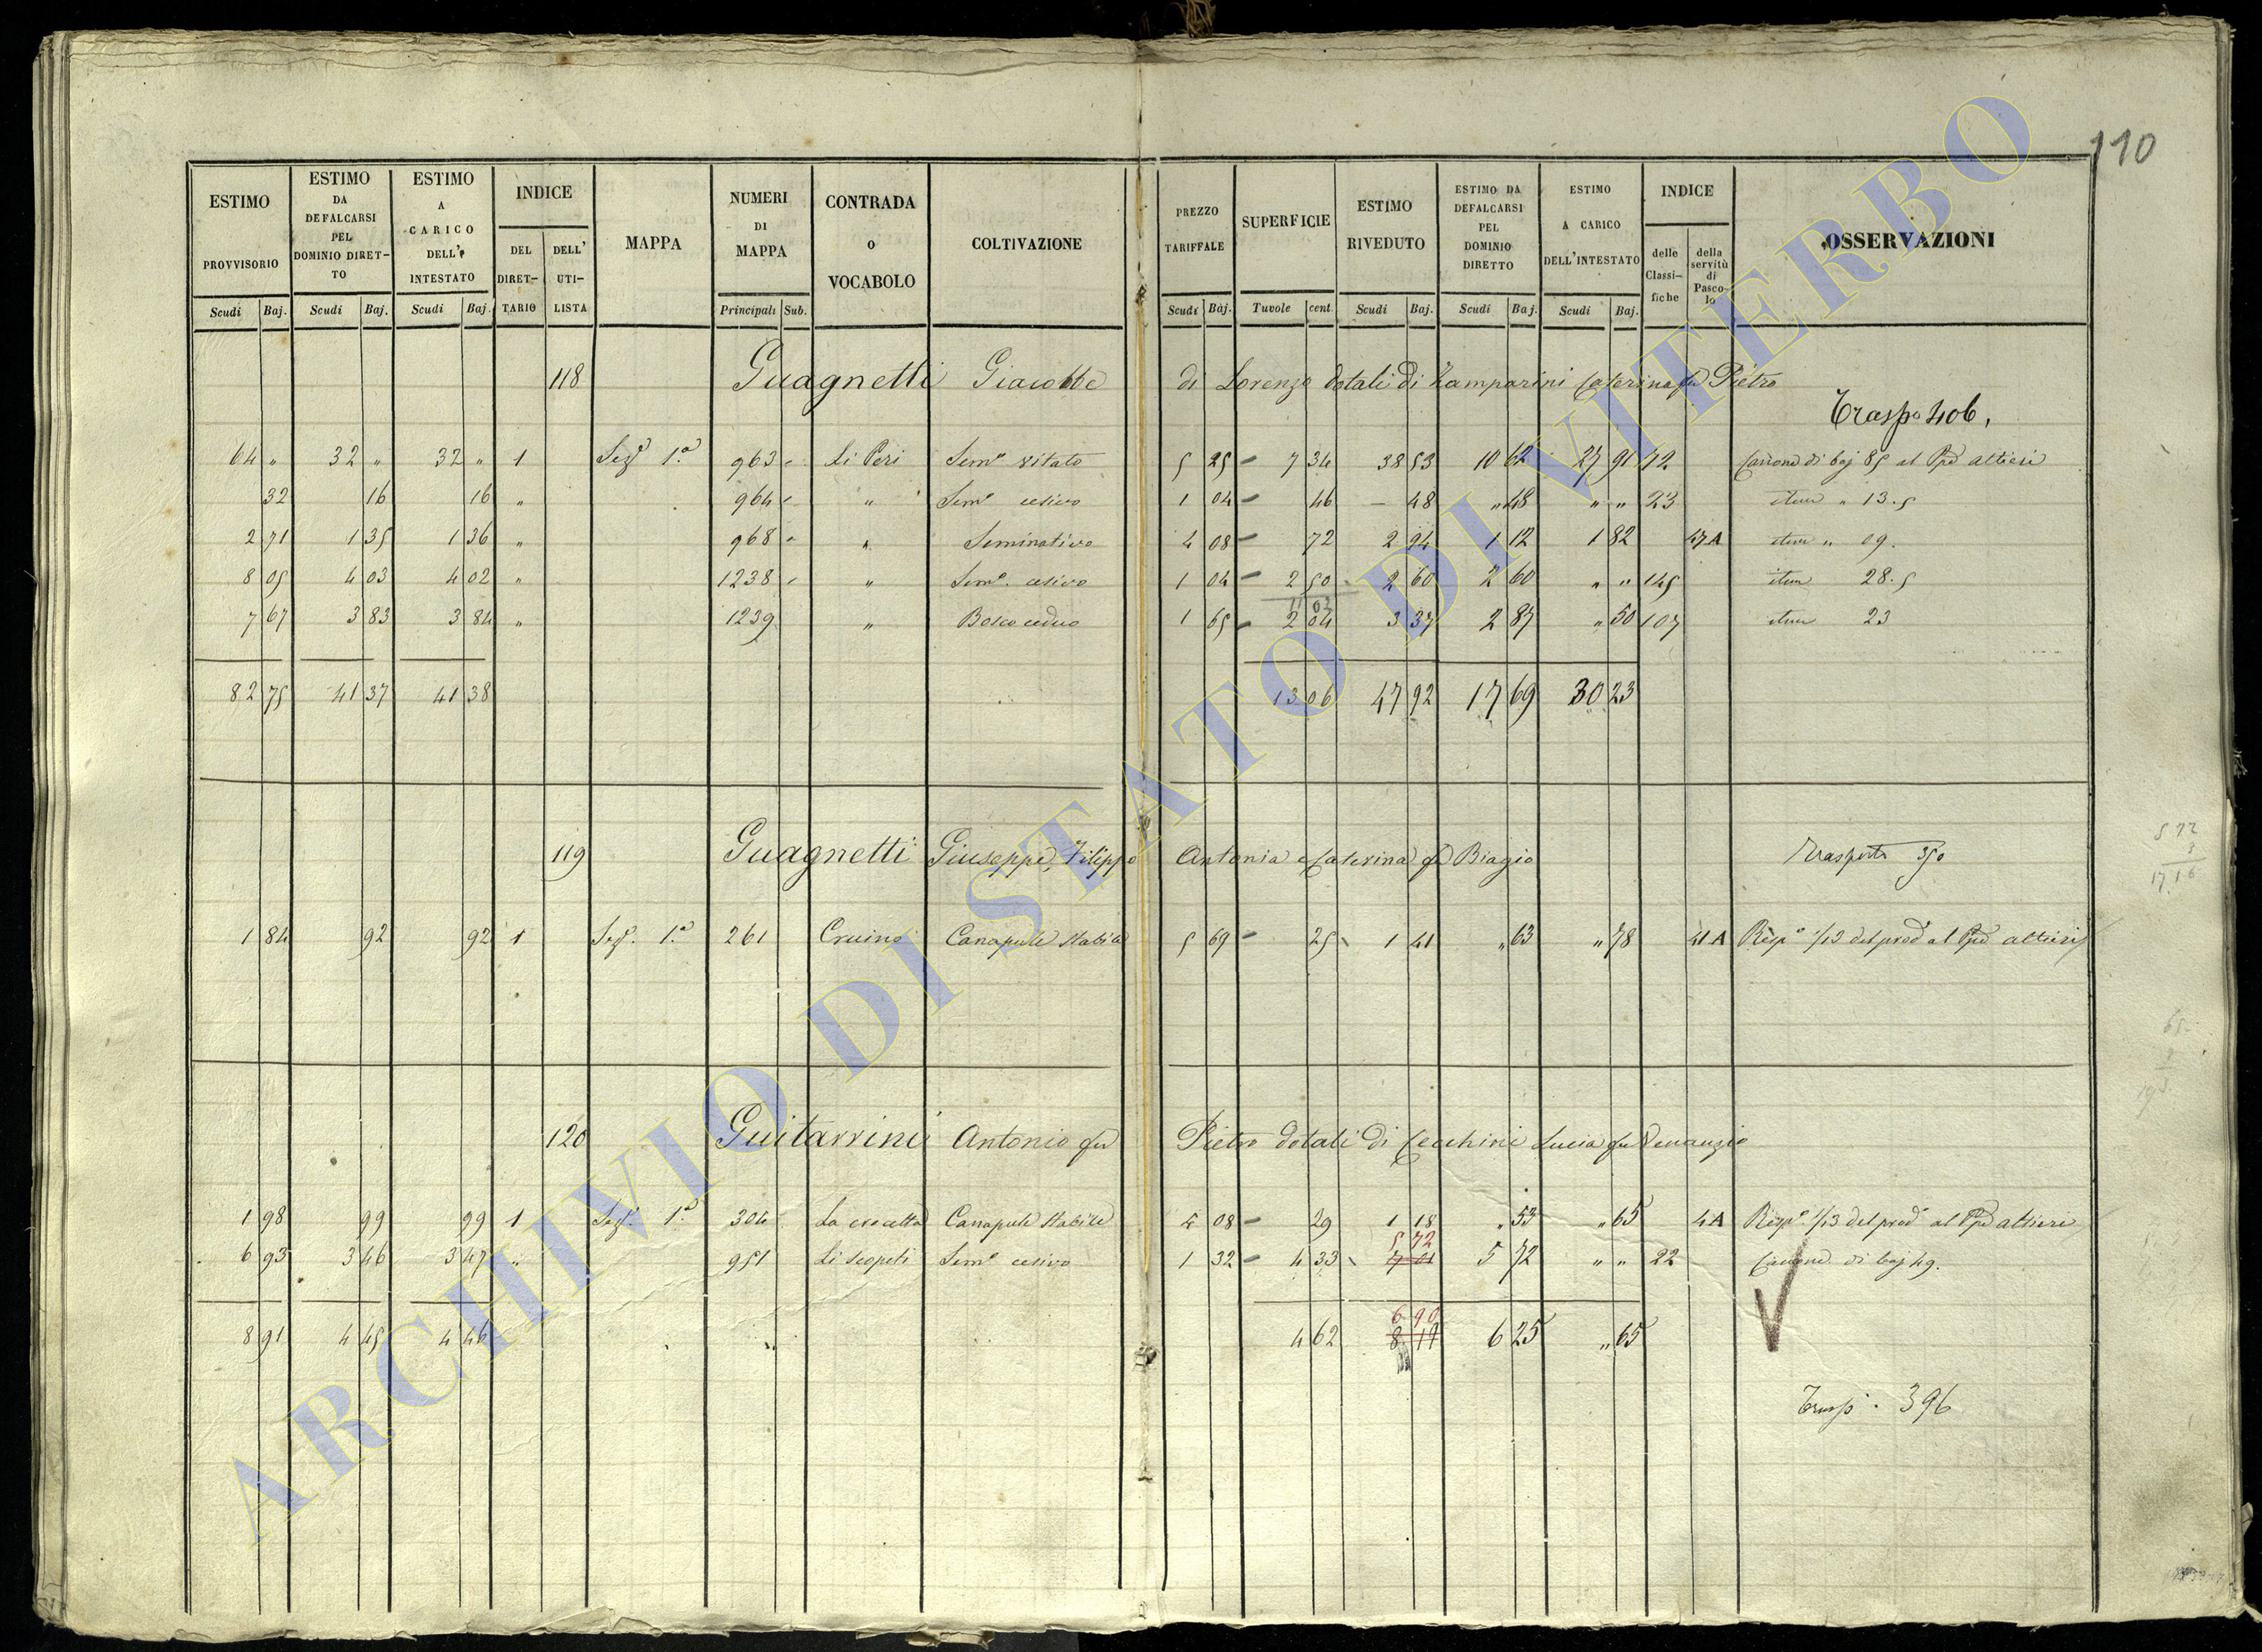 110
ESTIMO PROVVISORIO Scudi Baj.
ESTIMO DA DEFALCARSI PEL DOMINIO DIRET-TO Scudi Baj.
ESTIMO A CARICO DELL' INTESTATO Scudi Baj.
INDICE DEL DIRET-TARIO DELL' UTI-LISTA
MAPPA
NUMERI DI MAPPA Principali Sub.
CONTRADA O VOCABOLO
COLTIVAZIONE
PREZZO TARIFFALE Scudi Baj.
SUPERFICIE Tuvole cent.
ESTIMO RIVEDUTO Scudi Baj.
ESTIMO DA DEFALCARSI PEL DOMINIO DIRETTO Scudi Baj.
ESTIMO A CARICO DELL'INTESTATO Scudi Baj.
INDICE delle Classi-fiche della servitù di Pasco-lo
OSSERVAZIONI
118 Guagnetti Giacobbe di Lorenzo dotali di Zamparini Caterina fu Pietro
Trasp° 406.
64 " 32 " 32 " 1 Sezᵉ 1.ª 963 Li Peri Semᵒ vitato 5 25 7 34 38 53 10 62 27 91 72 Canone di baj 85 al Ppe Altieri
32 16 16 " 964 " Semᵒ cesivo 1 04 46 – 48 " 48 " " 23 item " 13.5
2 71 1 35 1 36 " 968 " Seminativo 4 08 72 2 94 1 12 1 82 47 A item " 09.
8 05 4 03 4 02 " 1238 " Semᵒ. cesivo 1 04 2 50 2 60 2 60 " " 145 item 28.5
11 02
7 67 3 83 3 84 " 1239 " Bosco ceduo 1 65 2 04 3 37 2 87 " 50 107 item 23
82 75 41 37 41 38 13 06 47 92 17 69 30 23
119 Guagnetti Giuseppe, Filippo Antonia e Caterina fu Biagio Trasporto 350
5 72
3
17.16
1 84 92 92 1 Sezᵉ. 1.ª 261 Cruino Canapule stabile 5 69 25 1 41 " 63 " 78 41 A Rispᵃ 1/13 del prodᵒ al Ppe Altieri
120 Guitarrini Antonio fu Pietro dotali di Cecchini Lucia fu Venanzio
1 98 99 99 1 Sezᵉ. 1.ª 304 La crocetta Canapule stabile 4 08 29 1 18 " 53 " 65 4 A Rispᵃ 1/13 del prodᵒ al Ppe Altieri
5 72
6 93 3 46 3 47 " 951 Li scopeti Semᵒ cesivo 1 32 4 33 5 72 " " 22 Canone di baj 49.
6 90
8 91 4 45 4 46 4 62 8 19 6 25 " 65
Trasp°. 396
ARCHIVIO DI STATO DI VITERBO